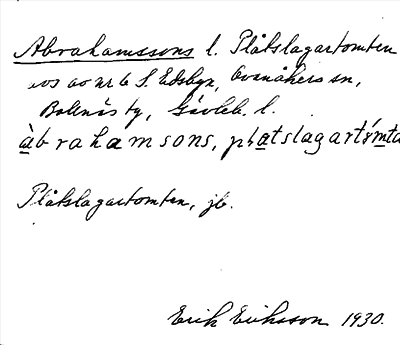 Abrahamssons l. Plåtslagartomten
avs av nr 6 S. Edsbyn, Ovanåkers sn,
Bollnäs tg, Gävleb. l.
àbrahamsons, platslagartómta
Plåtslagartomten, jb.
Erik Eriksson 1930.